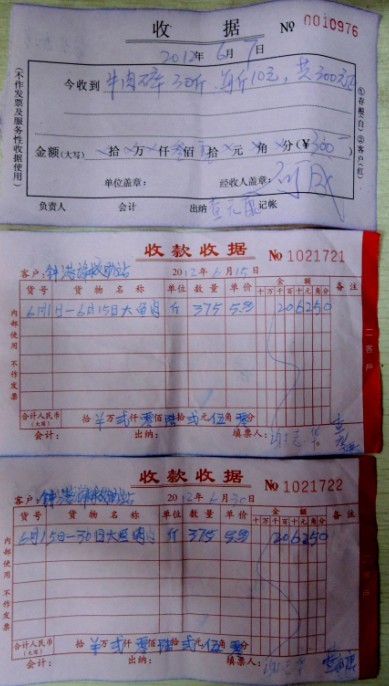 收 据 No 0010976
2012年6月7日
今收到 牛肉碎 30斤、每斤10元,共300元
金额(大写) 拾 万 仟 佰 拾 元 角 分(¥300
单位盖章: 经收人盖章:
负责人 会计 出纳 记帐
(不作发票及服务性收据使用)
①存根(白) ②客户(红)
收款收据 No 1021721
客户: 2012年6月15日
货号 货物名称 单位 数量 单价 金额 备注
千 百 十 万 千 百 十 元 角 分
6月1日-6月15日大鱼肉 斤 375 5.5 206250
合计人民币(大写) 拾 万 贰仟零佰陆拾贰元伍角零分
会计: 出纳: 填票人:
内部使用 不作发票
二客户
收款收据 No 1021722
客户: 2012年6月30日
货号 货物名称 单位 数量 单价 金额 备注
6月15日-30日大鱼肉 斤 375 5.5 206250
合计人民币(大写) 拾 万 贰仟零佰陆拾贰元伍角零分
会计: 出纳: 填票人:
内部使用 不作发票